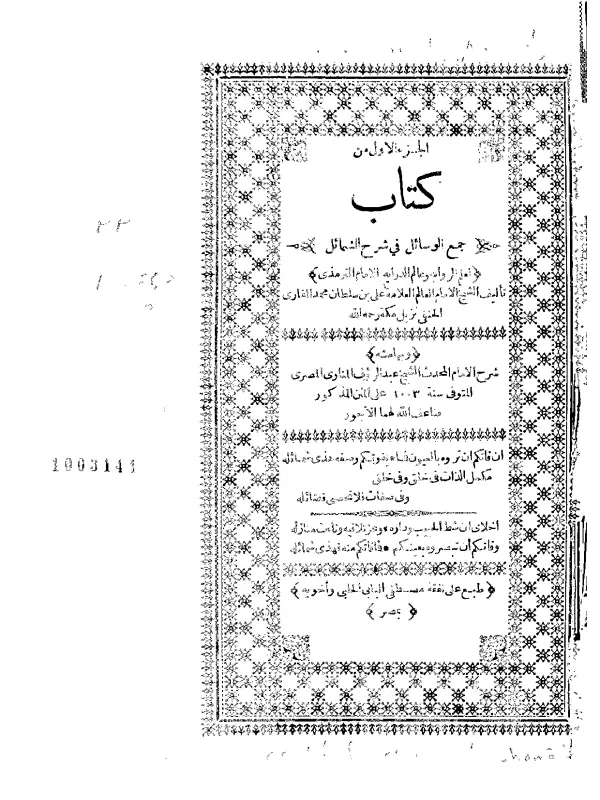 الجزء الاول من
كتاب
جمع الوسائل في شرح الشمائل
الرواية وعالم الدراية الامام الترمذى
تأليف الشيخ الامام العالم العلامة على بن سلطان محمد القارى
الحنفى نزيل مكة رحمه الله
(وبهامشه)
شرح الامام المحدث الشيخ عبد الرؤف المناوى المصرى
المتوفى سنة ١٠٠٣ على المتن المذكور
ضاعف الله لهما الأجور
ان فاتكم ان تروه بالعيون فما يفوتكم وصفه هذى شمائله
مكمل الذات فى خلق وفى خلق
وفى صفات فلا تحصى فضائله
اخلاى ان شط الحبيب وداره وعز تلاقيه وناءت منازله
وفاتكم أن تبصروه بعينكم فما فاتكم منه فهذى شمائله
(طبع على نفقة مصطفى البابى الحلبى وأخويه)
(بمصر)
1003141